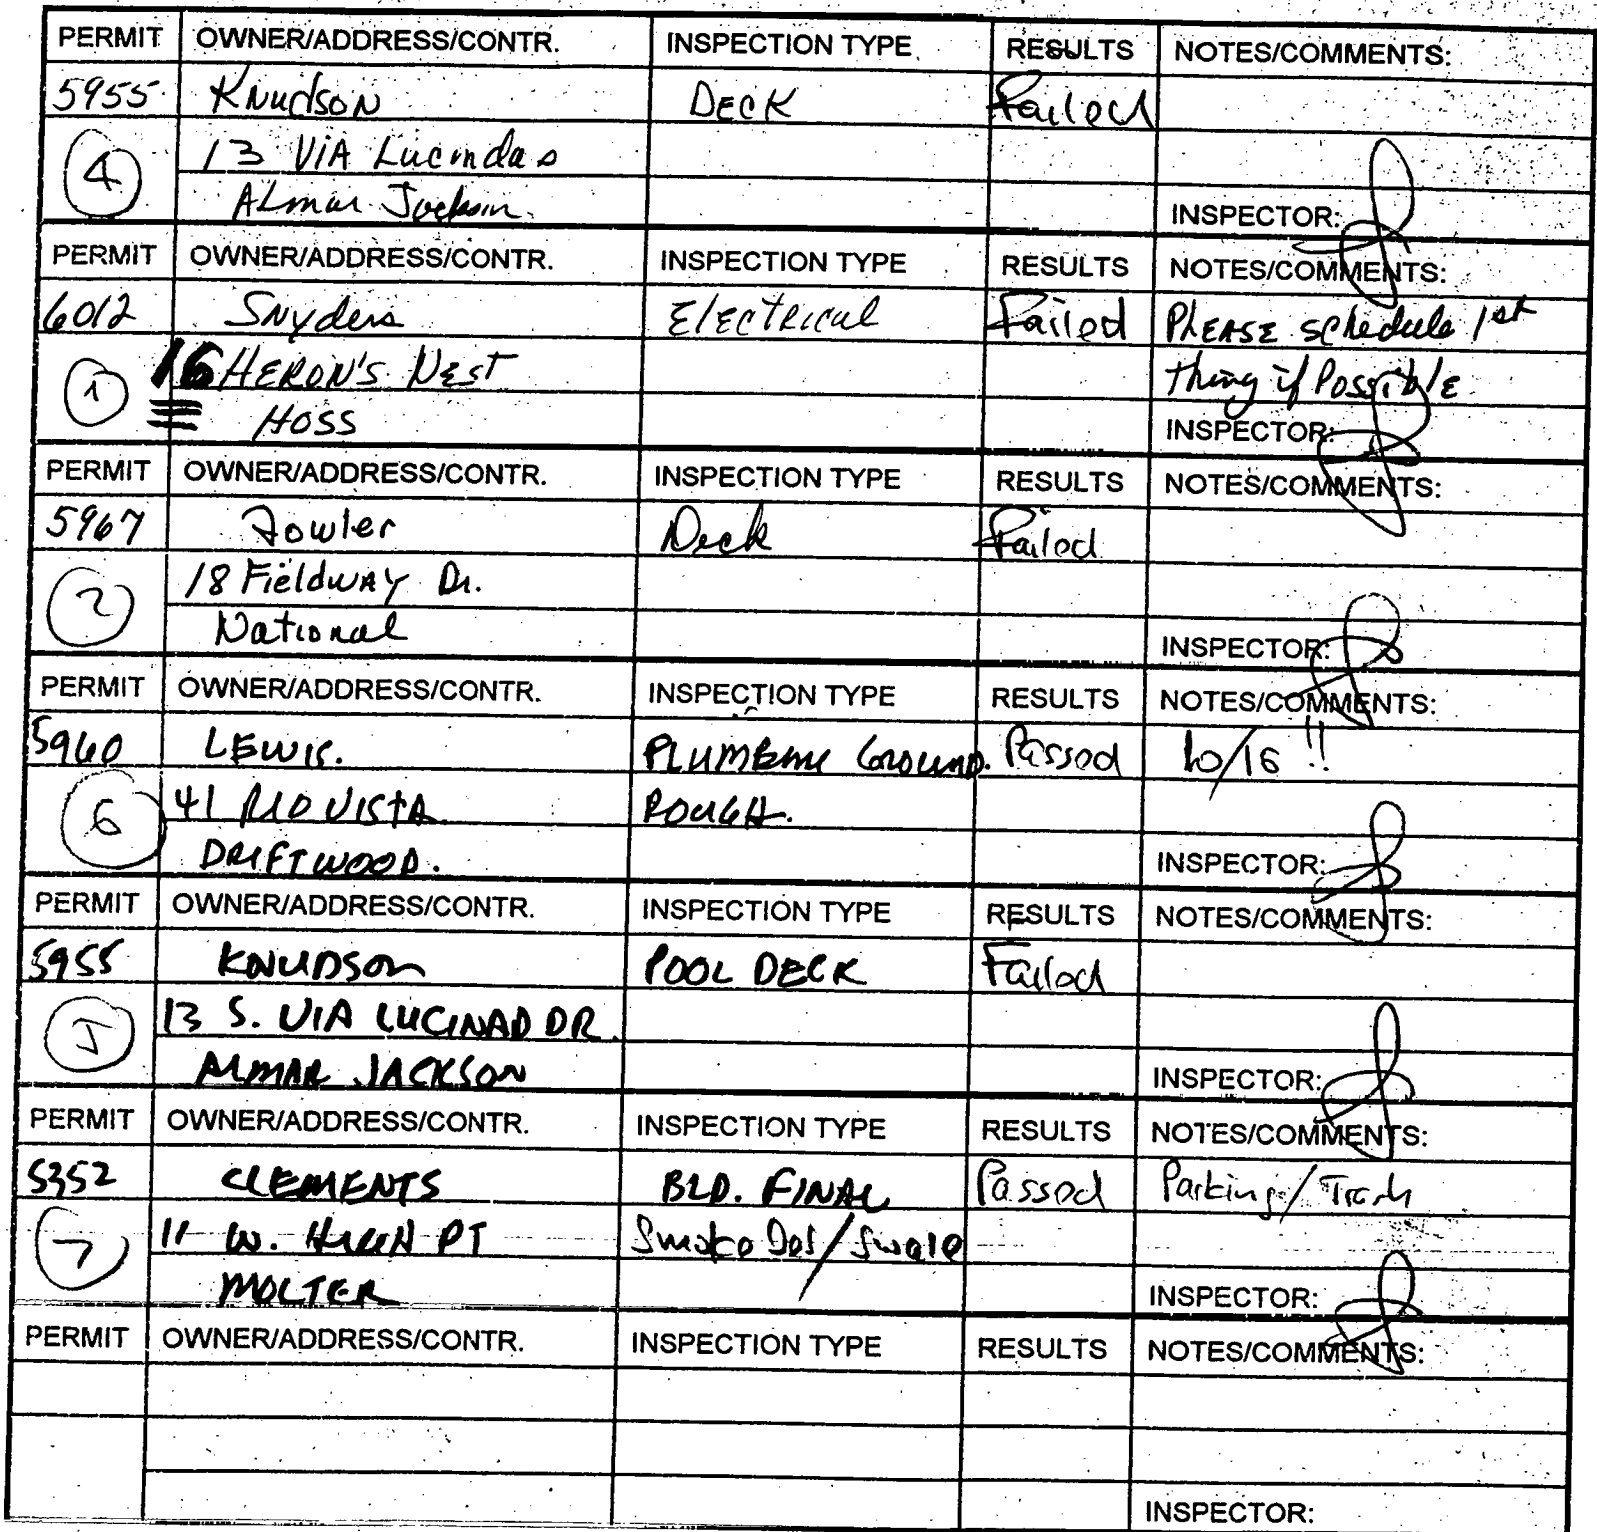 PERMIT OWNER/ADDRESS/CONTR. INSPECTION TYPE RESULTS NOTES/COMMENTS:
5955 Knudson Deck Failed
4 13 Via Lucindas
Almar Jackson INSPECTOR:
PERMIT OWNER/ADDRESS/CONTR. INSPECTION TYPE RESULTS NOTES/COMMENTS:
6012 Snyders Electrical Failed Please schedule 1st
1 16 Heron's Nest thing if Possible
Hoss INSPECTOR:
PERMIT OWNER/ADDRESS/CONTR. INSPECTION TYPE RESULTS NOTES/COMMENTS:
5967 Fowler Deck Failed
2 18 Fieldway Dr.
National INSPECTOR:
PERMIT OWNER/ADDRESS/CONTR. INSPECTION TYPE RESULTS NOTES/COMMENTS:
5960 LEWIS. Ground. Passed 10/16 !!
6 41 RIO VISTA ROUGH.
DRIFTWOOD. INSPECTOR:
PERMIT OWNER/ADDRESS/CONTR. INSPECTION TYPE RESULTS NOTES/COMMENTS:
5955 KNUDSON POOL DECK Failed
5 13 S. VIA LUCINAD DR.
ALMAR JACKSON INSPECTOR:
PERMIT OWNER/ADDRESS/CONTR. INSPECTION TYPE RESULTS NOTES/COMMENTS:
5352 CLEMENTS BLD. FINAL Passed Parking/Trash
7 11 W. HIGH PT Smoke Det/Swale
MOLTER INSPECTOR:
PERMIT OWNER/ADDRESS/CONTR. INSPECTION TYPE RESULTS NOTES/COMMENTS:
INSPECTOR: